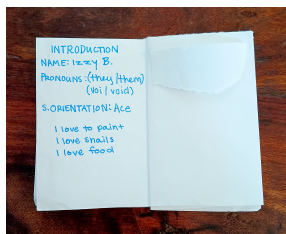 INTRODUCTION
NAME: Izzy B.
PRONOUNS: (they/them)
(voi/void)
S.ORIENTATION: ACE
I love to paint
I love snails
I love food